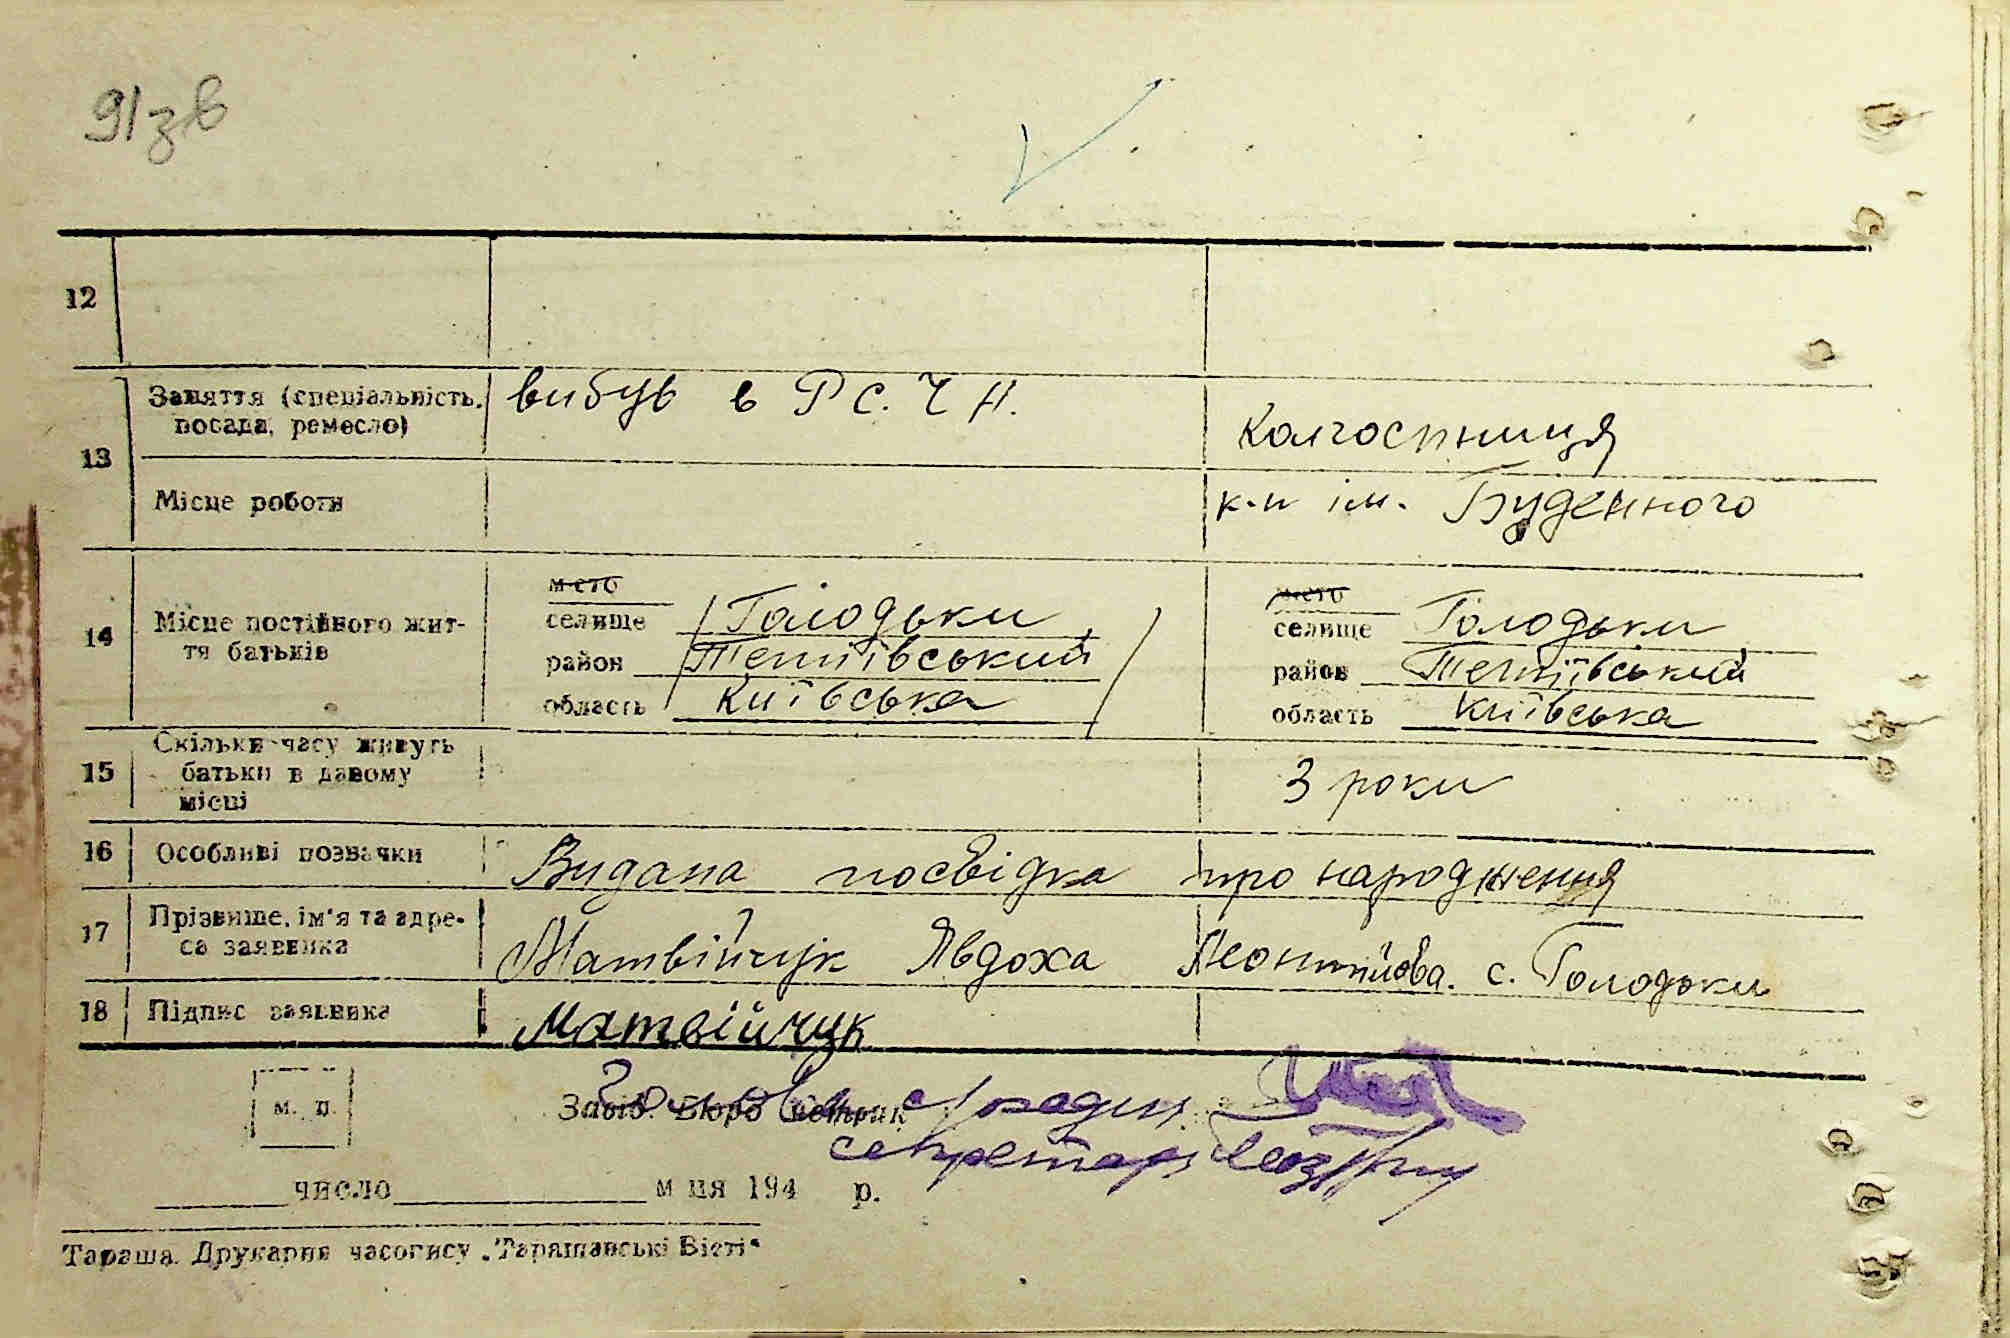 91зв
12
13 Заняття (спеціальність, посада, ремесло) вибув в Р С. Ч А. Колгоспниця
Місце роботи к-п ім. Буденного
14 Місце постійного життя батьків
місто місто
селище Голодьки селище Голодьки
район Тетіївський район Тетіївський
область Київська область Київська
15 Скільки часу живуть батьки в даному місці 3 роки
16 Особливі позначки Видана посвідка про народження
17 Прізвище, ім'я та адреса заявника Матвійчук Явдоха Леонтійова. с. Голодьки
18 Підпис заявника Матвійчук
м. п.
Завід. Бюро
секретарь
число м ця 194 р.
Тараща. Друкарня часопису „Таращанські Вісті“